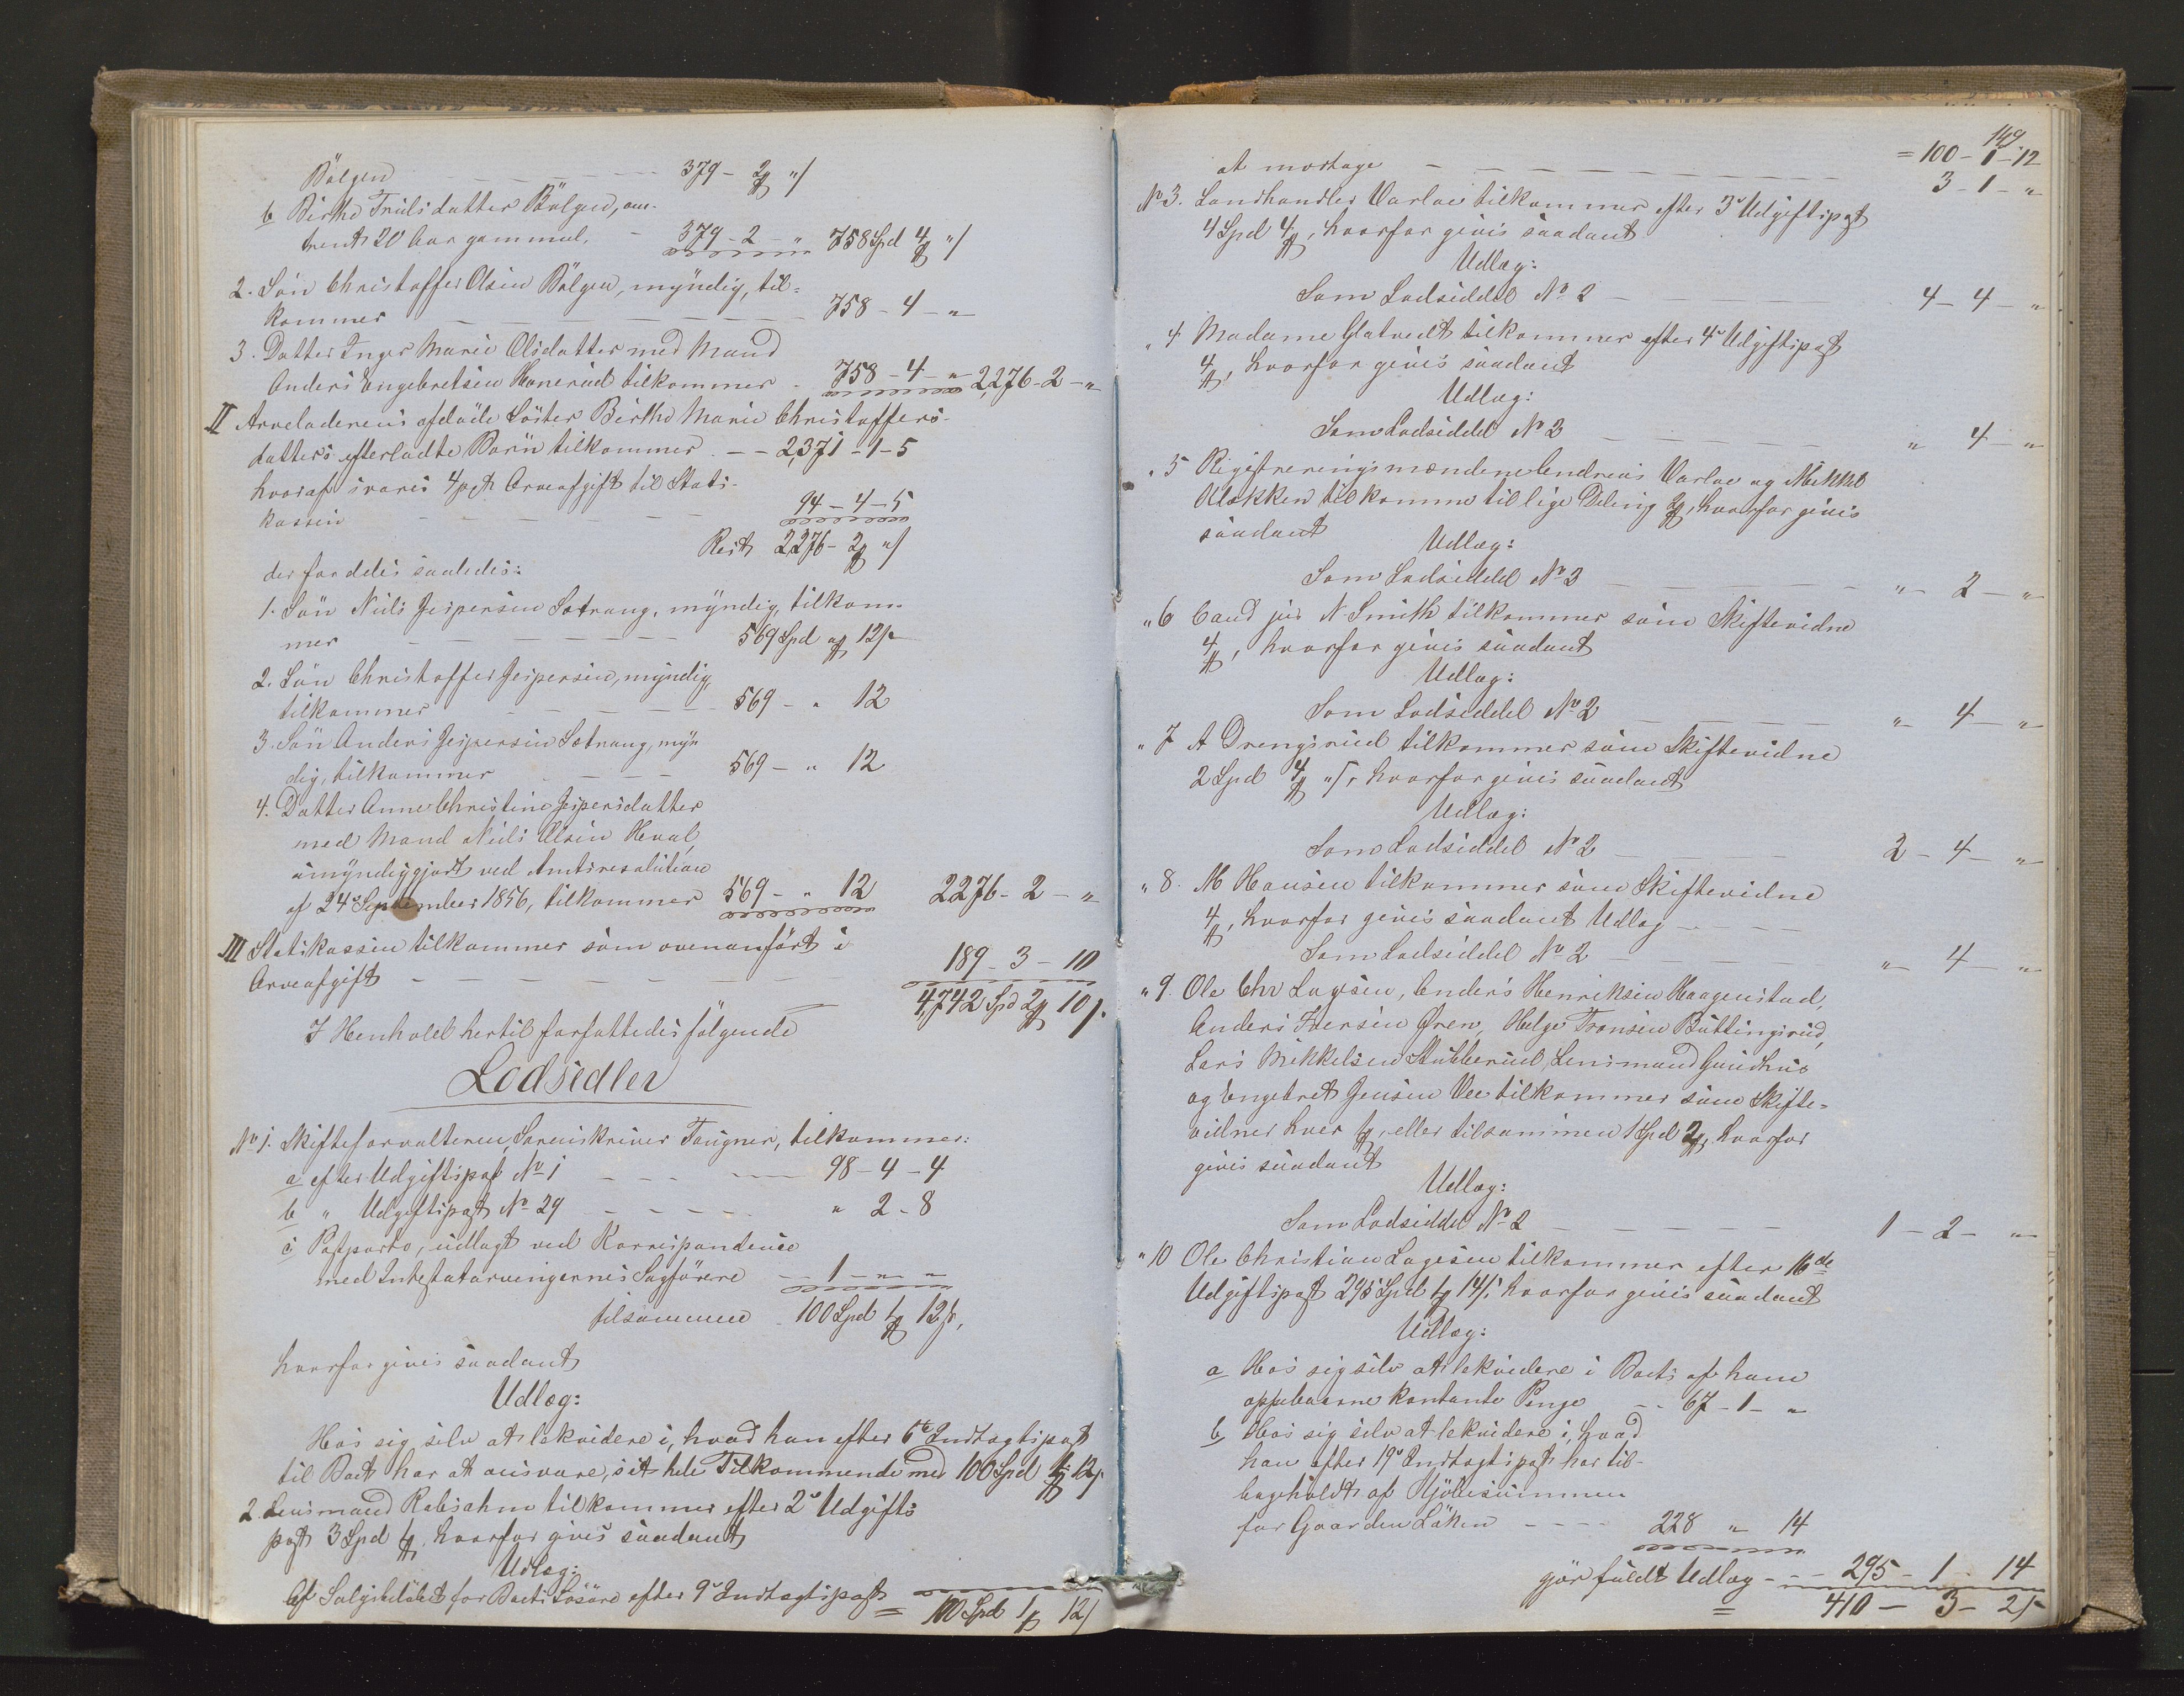 Bølgen — — — — 379 - 2 "
b Birthe Trulsdatter Bølgen, om-
trent 20 Aar gammel. - 379 - 2 - " 758 Spd 4 "
2. Søn Christoffer Olsen Bølgen, myndig, til-
kommer — — — — 758 - 4 - "
3. Datter Inger Marie Olsdatter med Mand
Anders Engebretsen Honerud tilkommer - 758 - 4 - " 2,276 - 2 - "
II Arveladerens afdøde Søster Birthe Marie Christoffers-
datters efterladte Børn tilkommer - - 2,371 - 1 - 5
hvoraf svares 4 pCt Arveafgift til Stats-
kassen — — — — 94 - 4 - 5
Rest 2276 - 2 "
der fordeles saaledes:
1. Søn Niels Jespersen Sætrang, myndig, tilkom-
mer — — — — 569 Spd " 12 s
2. Søn Christoffer Jespersen, myndig,
tilkommer — — — — 569 - " 12
3. Søn Anders Jespersen Sætrang, myn
dig, tilkommer — — — 569 - " 12
4. Datter Anne Christine Jespersdatter
med Mand Niels Olsen Hval,
umyndiggjort ved Amtsresolution
af 24de September 1856, tilkommer 569 - " 12 2276 - 2 - "
III Statskassen tilkommer som ovenanført i
Arveafgift — — — — 189 - 3 - 10
4,742 Spd 2 10 s.
I Henhold hertil forfattedes følgende
Lodsedler
No 1. Skifteforvalteren, Sorenskriver Faugner, tilkommer:
a efter Udgiftspost No 1 - - - 98 - 4 - 4
b " Udgiftspost No 29 - - - - " 2 - 8
c Postporto, udlagt ved Korrespondence
med Intestatarvingernes Sagførere - 1 - " - "
tilsammen 100 Spd 1 12 s,
hvorfor gives saadant
Udlæg:
Hos sig selv at lekvidere i, hvad han efter 6te Indtægtspost
til Boet har at ansvare, sit hele Tilkommende med 100 Spd 1 12 s
2. Lensmand Rabsahm tilkommer efter 2de Udgifts
post 3 Spd 1, hvorfor gives saadant
Udlæg:
Af Salgsbeløbet for Boets Løsøre efter 9de Indtægtspost = 100 Spd 1 12 s
149.
at modtage — — — — = 100 - 1 - 12
3 - 1 - "
No 3. Landhandler Varloe tilkommer efter 3de Udgiftspost
4 Spd 4, hvorfor gives saadant
Udlæg:
Som Lodseddel No 2 — — — 4 - 4 - "
" 4 Madame Glatvedt tilkommer efter 4de Udgiftspost
4, hvorfor gives saadant
Udlæg:
Som Lodseddel No 2 — — — " 4 - "
" 5 Registreringsmændene Endreas Varloe og Mikkel
Kløkken tilkomme til lige Deling 2, hvorfor gives
saadant
Udlæg:
Som Lodseddel No 2 — — — " - 2 - "
" 6 Cand jur N. Smith tilkommer som Skiftevidne
4, hvorfor gives saadant
Udlæg:
Som Lodseddel No 2 — — — " - 4 - "
" 7 A Drengsrud tilkommer som Skiftevidne
2 Spd 4 " s, hvorfor gives saadant
Udlæg:
Som Lodseddel No 2 — — — 2 - 4 - "
" 8. M Hansen tilkommer som Skiftevidne
4, hvorfor gives saadant Udlæg - - - -
Som Lodseddel No 2 — — — " - 4 - "
" 9. Ole Chr Lagesen, Anders Henriksen Haagenstad,
Anders Iversen Øren, Helge Tronsen Buttingsrud,
Lars Mikkelsen Stubberud, Lensmand Gundhus
og Engebret Jensen Vee tilkommer som Skifte-
vidner hver 1, eller tilsammen 1 Spd 2, hvorfor
gives saadant
Udlæg:
Som Lodseddel No 2 — — — 1 - 2 - "
" 10 Ole Christian Lagesen tilkommer efter 16de
Udgiftspost 295 Spd 1 14 s, hvorfor gives saadant
Udlæg:
a Hos sig selv at lekvidere i Boets af ham
oppebaarne kontante Penge - - 67 - 1 - "
b Hos sig selv at lekvidere i, hvad
han efter 19de Indtægtspost har til-
bageholdt af Kjøbesummen
for Gaarden Løken - - - - 228 " 14
gjør fuldt Udlæg - - - 295 - 1 - 14
= 410 - 3 - 2 s